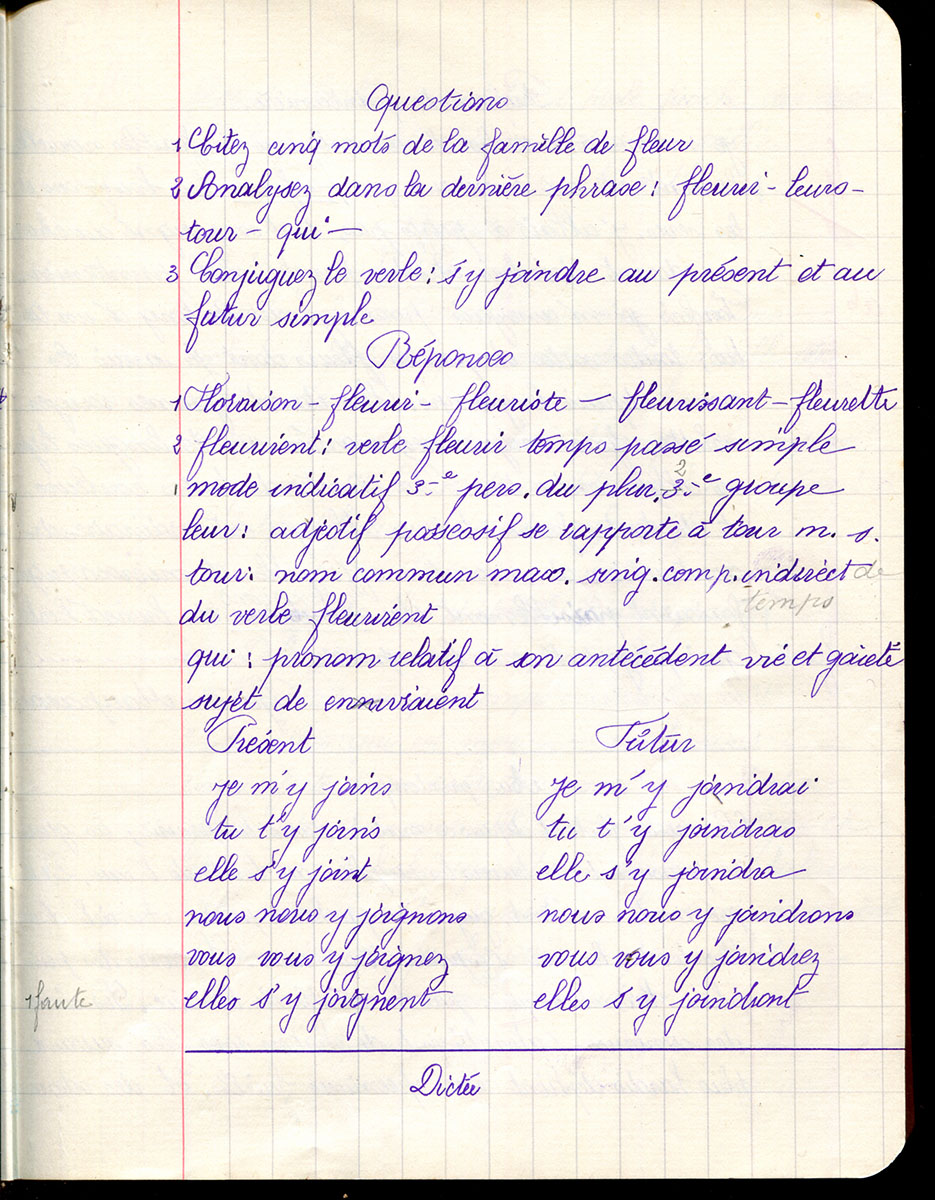 Questions
1 Citez cinq mots de la famille de fleur
2 Analysez dans la dernière phrase : fleurir - leurs -
tour - qui -
3 Conjuguez le verbe : s'y joindre au présent et au
futur simple
Réponses
1 Floraison - fleurir - fleuriste - fleurissant - fleurette
2 fleurirent : verbe fleurir temps passé simple
mode indicatif 3e pers. du plur. 3e 2 groupe
leur : adjectif possessif se rapporte à tour m. s.
tour : nom commun masc. sing. comp. indirect de
temps
du verbe fleurirent
qui : pronom relatif à son antécédent vie et gaieté
sujet de
Présent Futur
je m'y joins Je m'y joindrai
tu t'y joins tu t'y joindras
elle s'y joint elle s'y joindra
nous nous y joignons nous nous y joindrons
vous vous y joignez vous vous y joindrez
1 faute elles s'y joignent elles s'y joindront
Dictée